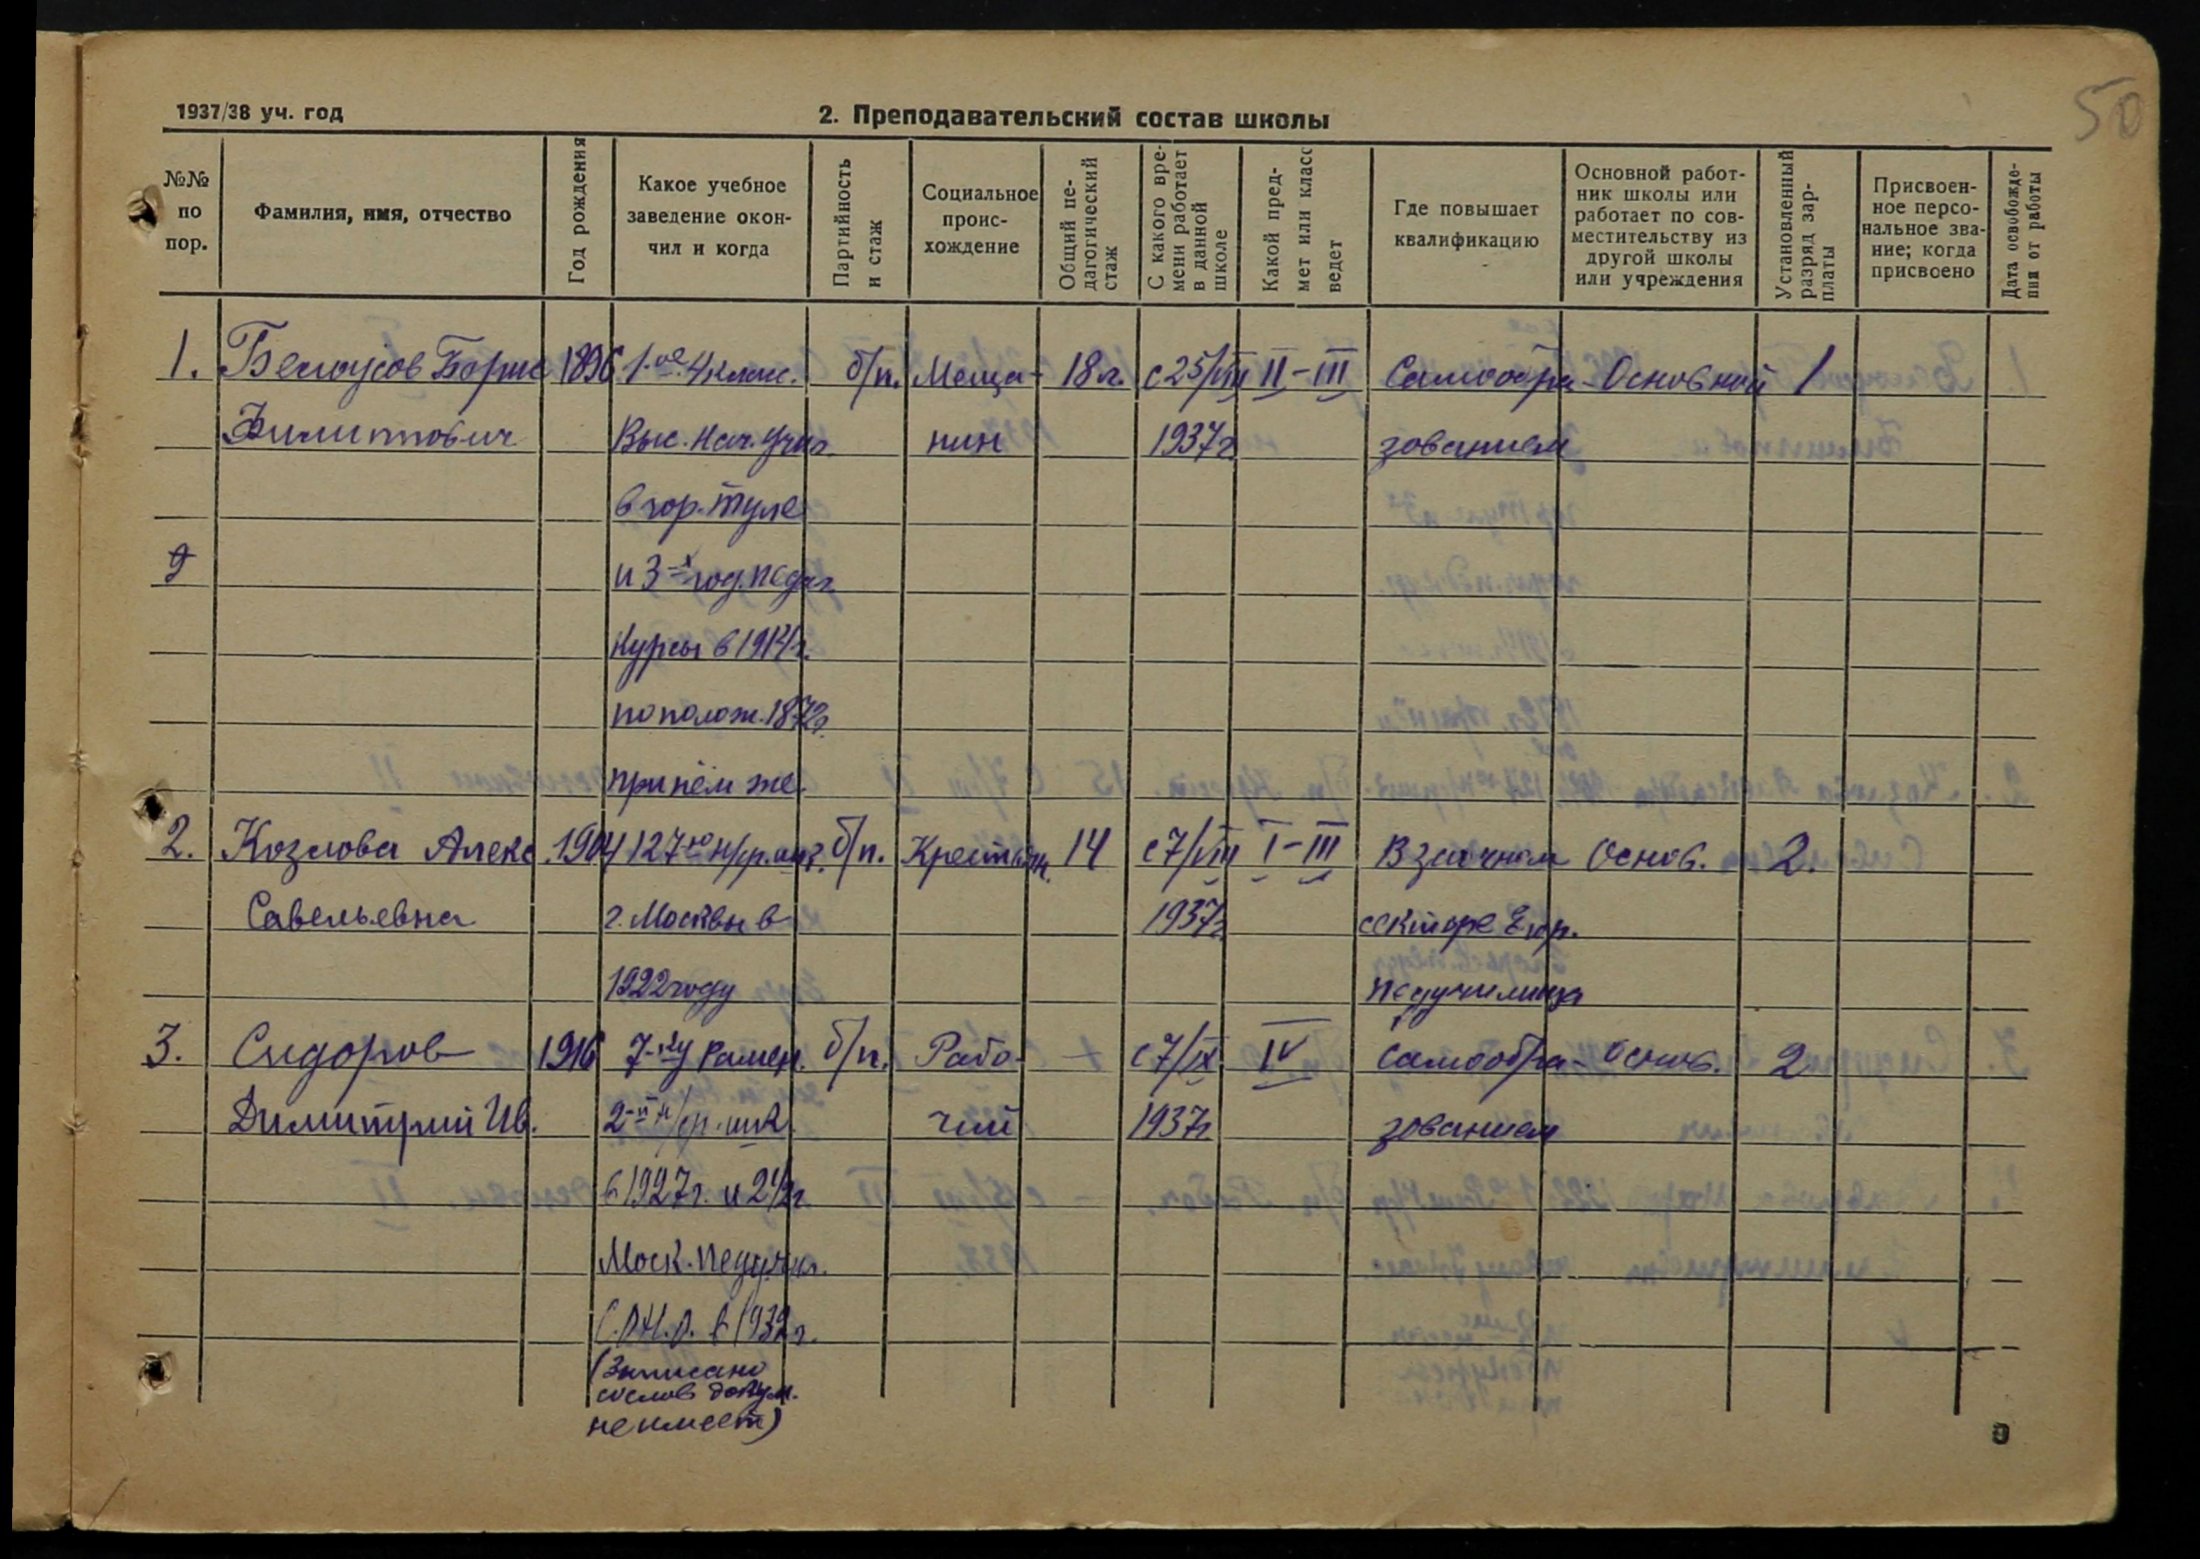 50
1937/38 уч. год
2. Преподавательский состав школы
№№ по пор.
Фамилия, имя, отчество
Год рождения
Какое учебное заведение окончил и когда
Партийность и стаж
Социальное происхождение
Общий педагогический стаж
С какого времени работает в данной школе
Какой предмет или класс ведет
Где повышает квалификацию
Основной работник школы или работает по совместительству из другой школы или учреждения
Установленный разряд зарплаты
Присвоенное персональное звание; когда присвоено
Дата освобождения от работы
1. Белоусов Борис 1896 1-ое 4 клас. б/п. Меща- 18 л. с 25/VIII II-III Самообра- Основной 1
Филиппович Выс. Нач. Учил. нин 1937г. зованием
в гор. Туле
и 3-х год. педаг.
Курсы в 1914г.
по полож. 1872г.
при нём же.
2. Козлова Алекс 1904 127-ю н/ср. шк. б/п. Крестьян. 14 с 7/VIII I-III В заочном Основ. 2.
Савельевна г. Москвы в 1937г. секторе Егор.
1922 году педучилища
3. Сидоров 1916 7-лу Рамен. б/п. Рабо- с 7/IX IV самообра- основ. 2
Димитрий Ив. 2-й н/ср. шк. чий 1937г зованием
в 1927г. и 2 1/2 г.
Моск. Педучил.
в 1932г.
(Записано
со слов докум.
не имеет)